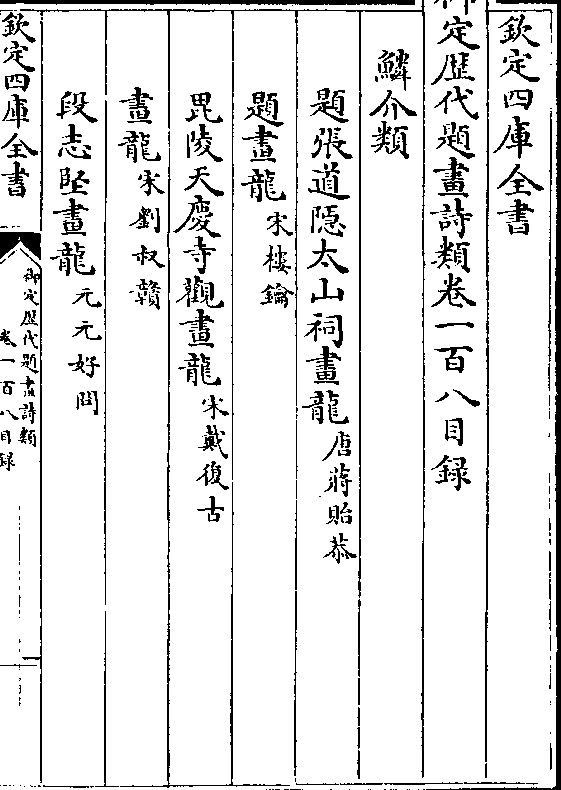 欽定四庫全書
御定歴代題畫詩類卷一百八目録
鱗介類
題張道隠太山祠畫龍 唐蔣貽恭
題畫龍 宋樓鑰
毘陵天慶寺觀畫龍 宋戴復古
畫龍 宋劉叔贛
段志堅畫龍 元元好問
欽定四庫全書
御定歴代題畫詩類
卷一百八目録